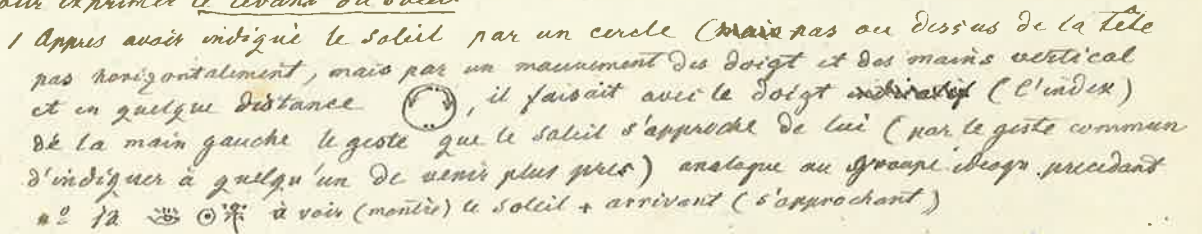 pour exprimer le levant du soleil
1 Appres avoir indiqué le soleil par un cercle (mais pas au dessus de la tête
pas horizontalement, mais par un mouvement des doigt et des mains vertical
et en quelque distance , il faisait avec le doigt indicatif (l'index)
de la main gauche le geste que le soleil s'approche de lui (par le geste commun
d'indiquer à quelqu'un de venir plus pres) analogue au groupe ideogr. precedant
nº 1a à voir (montre) le soleil + arrivant (s'approchant)